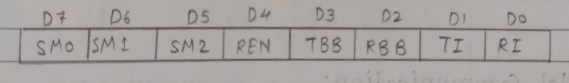 D7 D6 D5 D4 D3 D2 D1 D0
SM0 SM1 SM2 REN TBB RBB TI RI